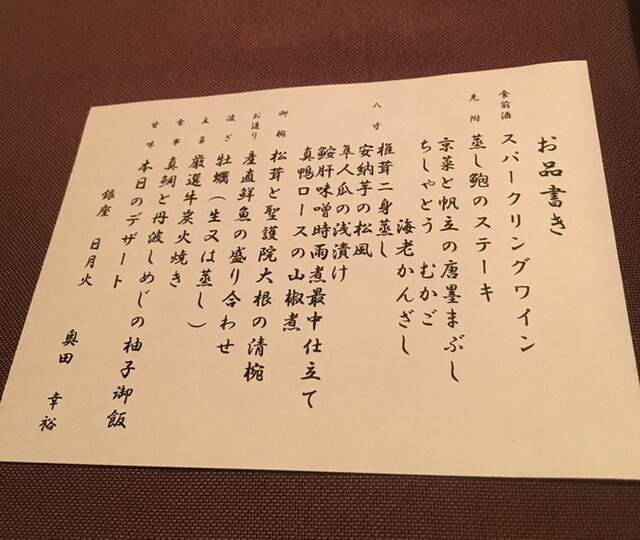 お品書き
食前酒 スパークリングワイン
先附 蒸し鮑のステーキ
京菜と帆立の唐墨まぶし
ちしゃとう むかご
海老かんざし
八寸 椎茸二身蒸し
安納芋の松風
隼人瓜の浅漬け
鮟肝味噌時雨煮最中仕立て
真鴨ロースの山椒煮
御椀 松茸と聖護院大根の清椀
お造り 産直鮮魚の盛り合わせ
凌ぎ 牡蠣(生又は蒸し)
主菜 厳選牛炭火焼き
食事 真鯛と丹波しめじの柚子御飯
甘味 本日のデザート
銀座 日月火
奥田 幸裕